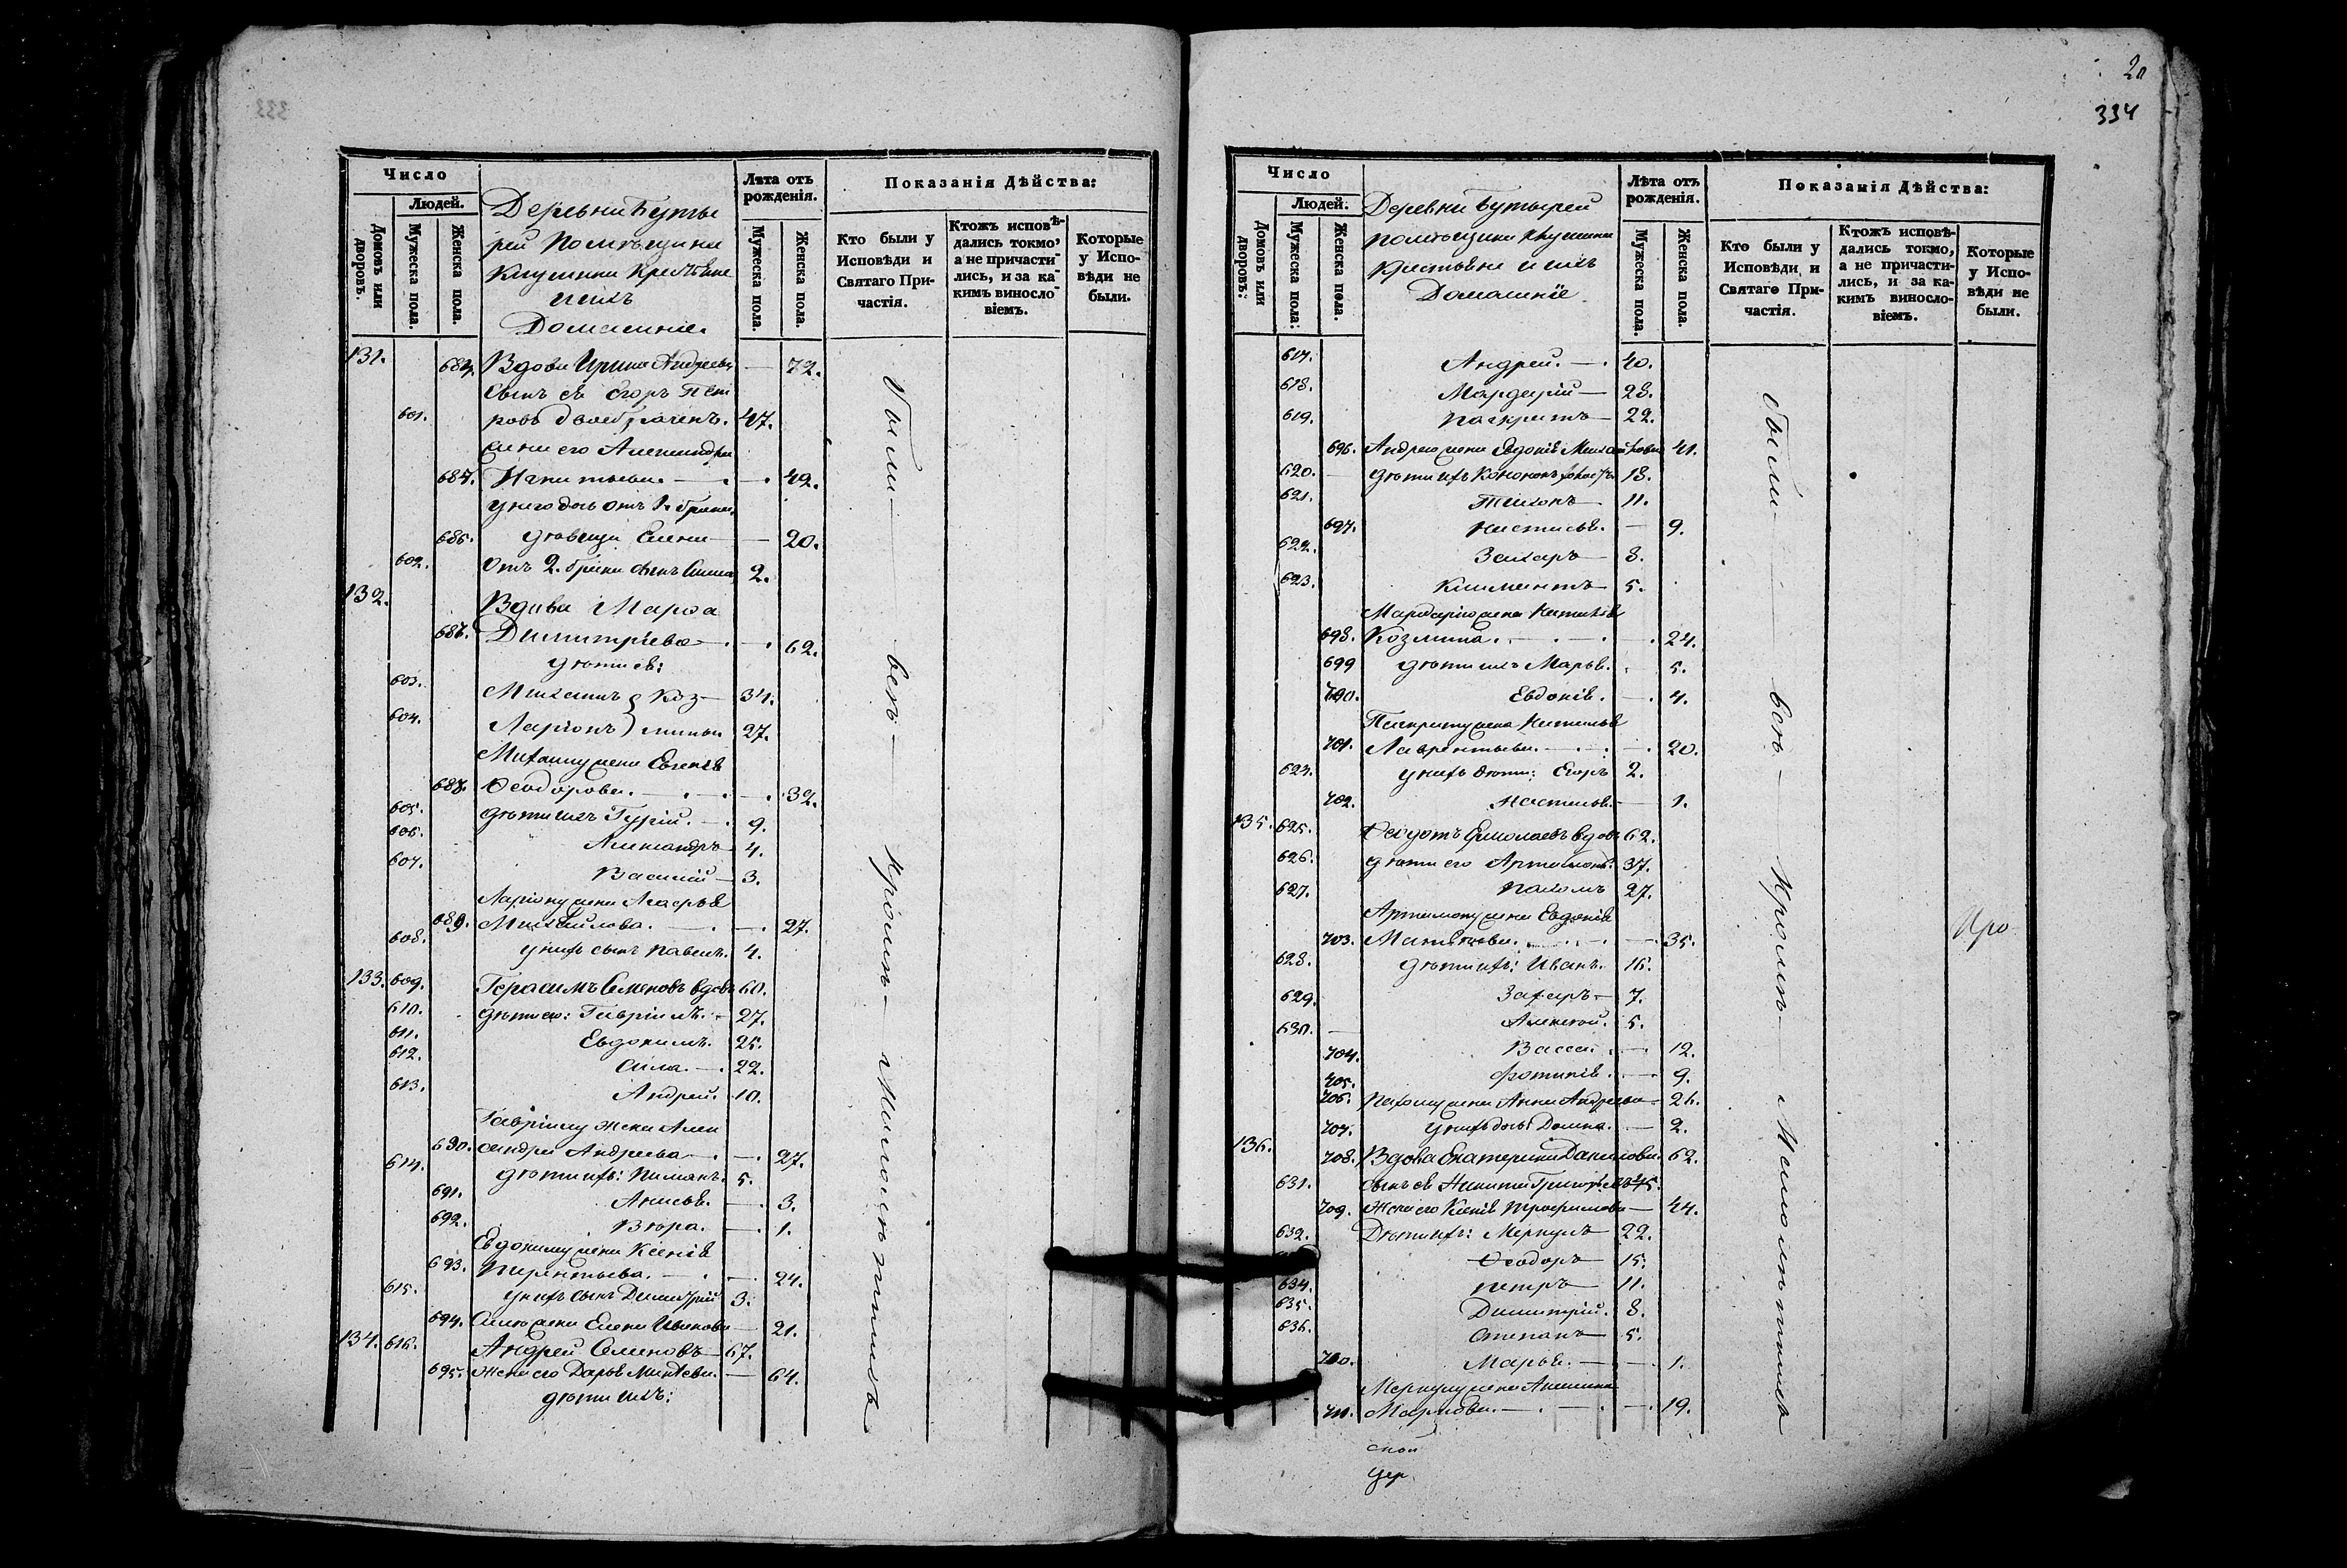 333
Число
Людей.
Домовъ или дворовъ.
Мужеска пола.
Женска пола.
Деревни Буты
рей Помѣщики
крестьяне
и ихъ
Домашніе.
Лѣта отъ рожденія.
Мужеска пола.
Женска пола.
Показанія Дѣйства:
Кто были у Исповѣди и Святаго При-частія.
Ктожъ исповѣ-дались токмо, а не причасти-лись, и за ка-кимъ виносло-віемъ.
Которые у Испо-вѣди не были.
131. 684. Вдова Ирина Андреева — 72.
Сынъ ея Егоръ Пет
601. ровъ двоебраченъ. 47.
жена его Александра
685. Игнатьева. — 42.
у него дочь отъ 1. брака
686. дѣвица Елена — 20.
602. Отъ 2. брака сынъ 2.
132. Вдова Марѳа
687. Димитріева — 62.
дѣти ея:
603. Михаилъ Коз- 34.
604. Ларіонъ мины 27.
Михаилу жена Евгенія
688. Ѳеодорова. — 32.
605. дѣти ихъ Гурій. — 9.
606. Александръ 4.
607. Василій — 3.
Ларіону жена Агафья
689. Михайлова. — 27.
608. у нихъ сынъ Павелъ. 4.
133. 609. Герасимъ Семеновъ вдовъ 60.
610. дѣти его: Гавріилъ. — 27.
611. Евдокимъ. 25.
612. Сила. — 22.
613. Андрей. 10.
Гавріилу жена Алек
690. сандра Андреева — 27.
614. дѣти ихъ: Пименъ. 5.
691. Анисья. — 3.
692. Вѣра. — 1.
Евдокиму жена Ксенія
693. Терентьева. — 24.
615. у нихъ сынъ Димитрій 3.
694. Силѣ жена Елена Иванова — 21.
134. 616. Андрей Семеновъ — 67.
695. Жена его Дарья — 64.
дѣти ихъ:
Были — всѣ — кромѣ — малолѣтнихъ
20
334
Число
Людей.
Домовъ или дворовъ:
Мужеска пола:
Женска пола.
Деревни Бутырей
помѣщики
Крестьяне и ихъ
Домашніе.
Лѣта отъ рожденія.
Мужеска пола.
Женска пола.
Показанія Дѣйства:
Кто были у Исповѣди и Святаго При-частія.
Ктожъ исповѣ-дались токмо, а не причасти-лись, и за ка-кимъ виносло-віемъ.
Которые у Испо-вѣди не были.
617. Андрей. — 40.
618. Мардарій — 28.
619. Панкратъ — 22.
696. Андрею жена Евдокія Михайлова 41.
620. дѣти ихъ Кононъ 18.
621. Тихонъ 11.
697. Настасья. — 9.
622. Захаръ — 8.
623. Климентъ — 5.
Мардарію жена Наталія
698. Козмина. — 24.
699 дѣти ихъ Марья. 5.
700. Евдокія. — 4.
Панкрату жена Наталья
701. Лаврентьева. — 20.
624. у нихъ дѣти: Егоръ 2.
702. Настасья. — 1.
135. 625. Ѳеодотъ Ермолаевъ вдовъ 62.
626. дѣти его Артамонъ 37.
627. Пахомъ 27.
Артамону жена Евдокія
703. Матвѣева. — 35.
628. дѣти ихъ: Иванъ. 16.
629. Захаръ — 7.
630. Алексѣй. 5.
704. Васса. — 12.
705. Фотинія. — 9.
706. Пахому жена Анна Андреева — 26.
707. у нихъ дочь Домна. — 2.
136. 708. Вдова Екатерина Данилова 62.
631. сынъ ея Никита Григорьевъ 45.
709. Жена его Ксенія Трофимова — 44.
632. Дѣти ихъ: Меркулъ 22.
Ѳеодоръ 15.
634. Петръ — 11.
635. Димитрій. 8.
636. Степанъ — 5.
710. Марья. — 1.
Меркулу жена Акилина
711. Маркова. — 19.
Были — всѣ — кромѣ — малолѣтнихъ
Кро
ской
дер.